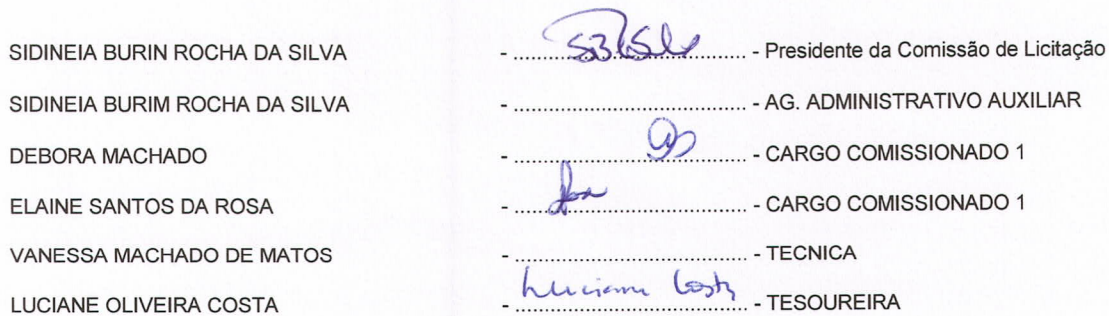 SIDINEIA BURIN ROCHA DA SILVA - ........................................ - Presidente da Comissão de Licitação
SIDINEIA BURIM ROCHA DA SILVA - ........................................ - AG. ADMINISTRATIVO AUXILIAR
DEBORA MACHADO - ........................................ - CARGO COMISSIONADO 1
ELAINE SANTOS DA ROSA - ........................................ - CARGO COMISSIONADO 1
VANESSA MACHADO DE MATOS - ........................................ - TECNICA
LUCIANE OLIVEIRA COSTA - Luciane Costa - TESOUREIRA